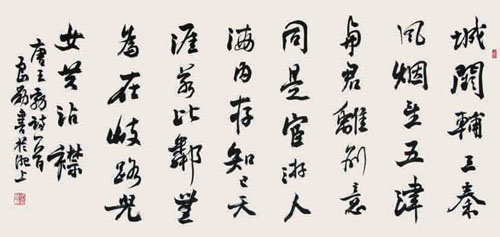 城闕輔三秦
風烟望五津
與君離別意
同是宦游人
海内存知己天
涯若比鄰無
為在歧路兒
女共沾襟
唐王勃詩一首
書於上